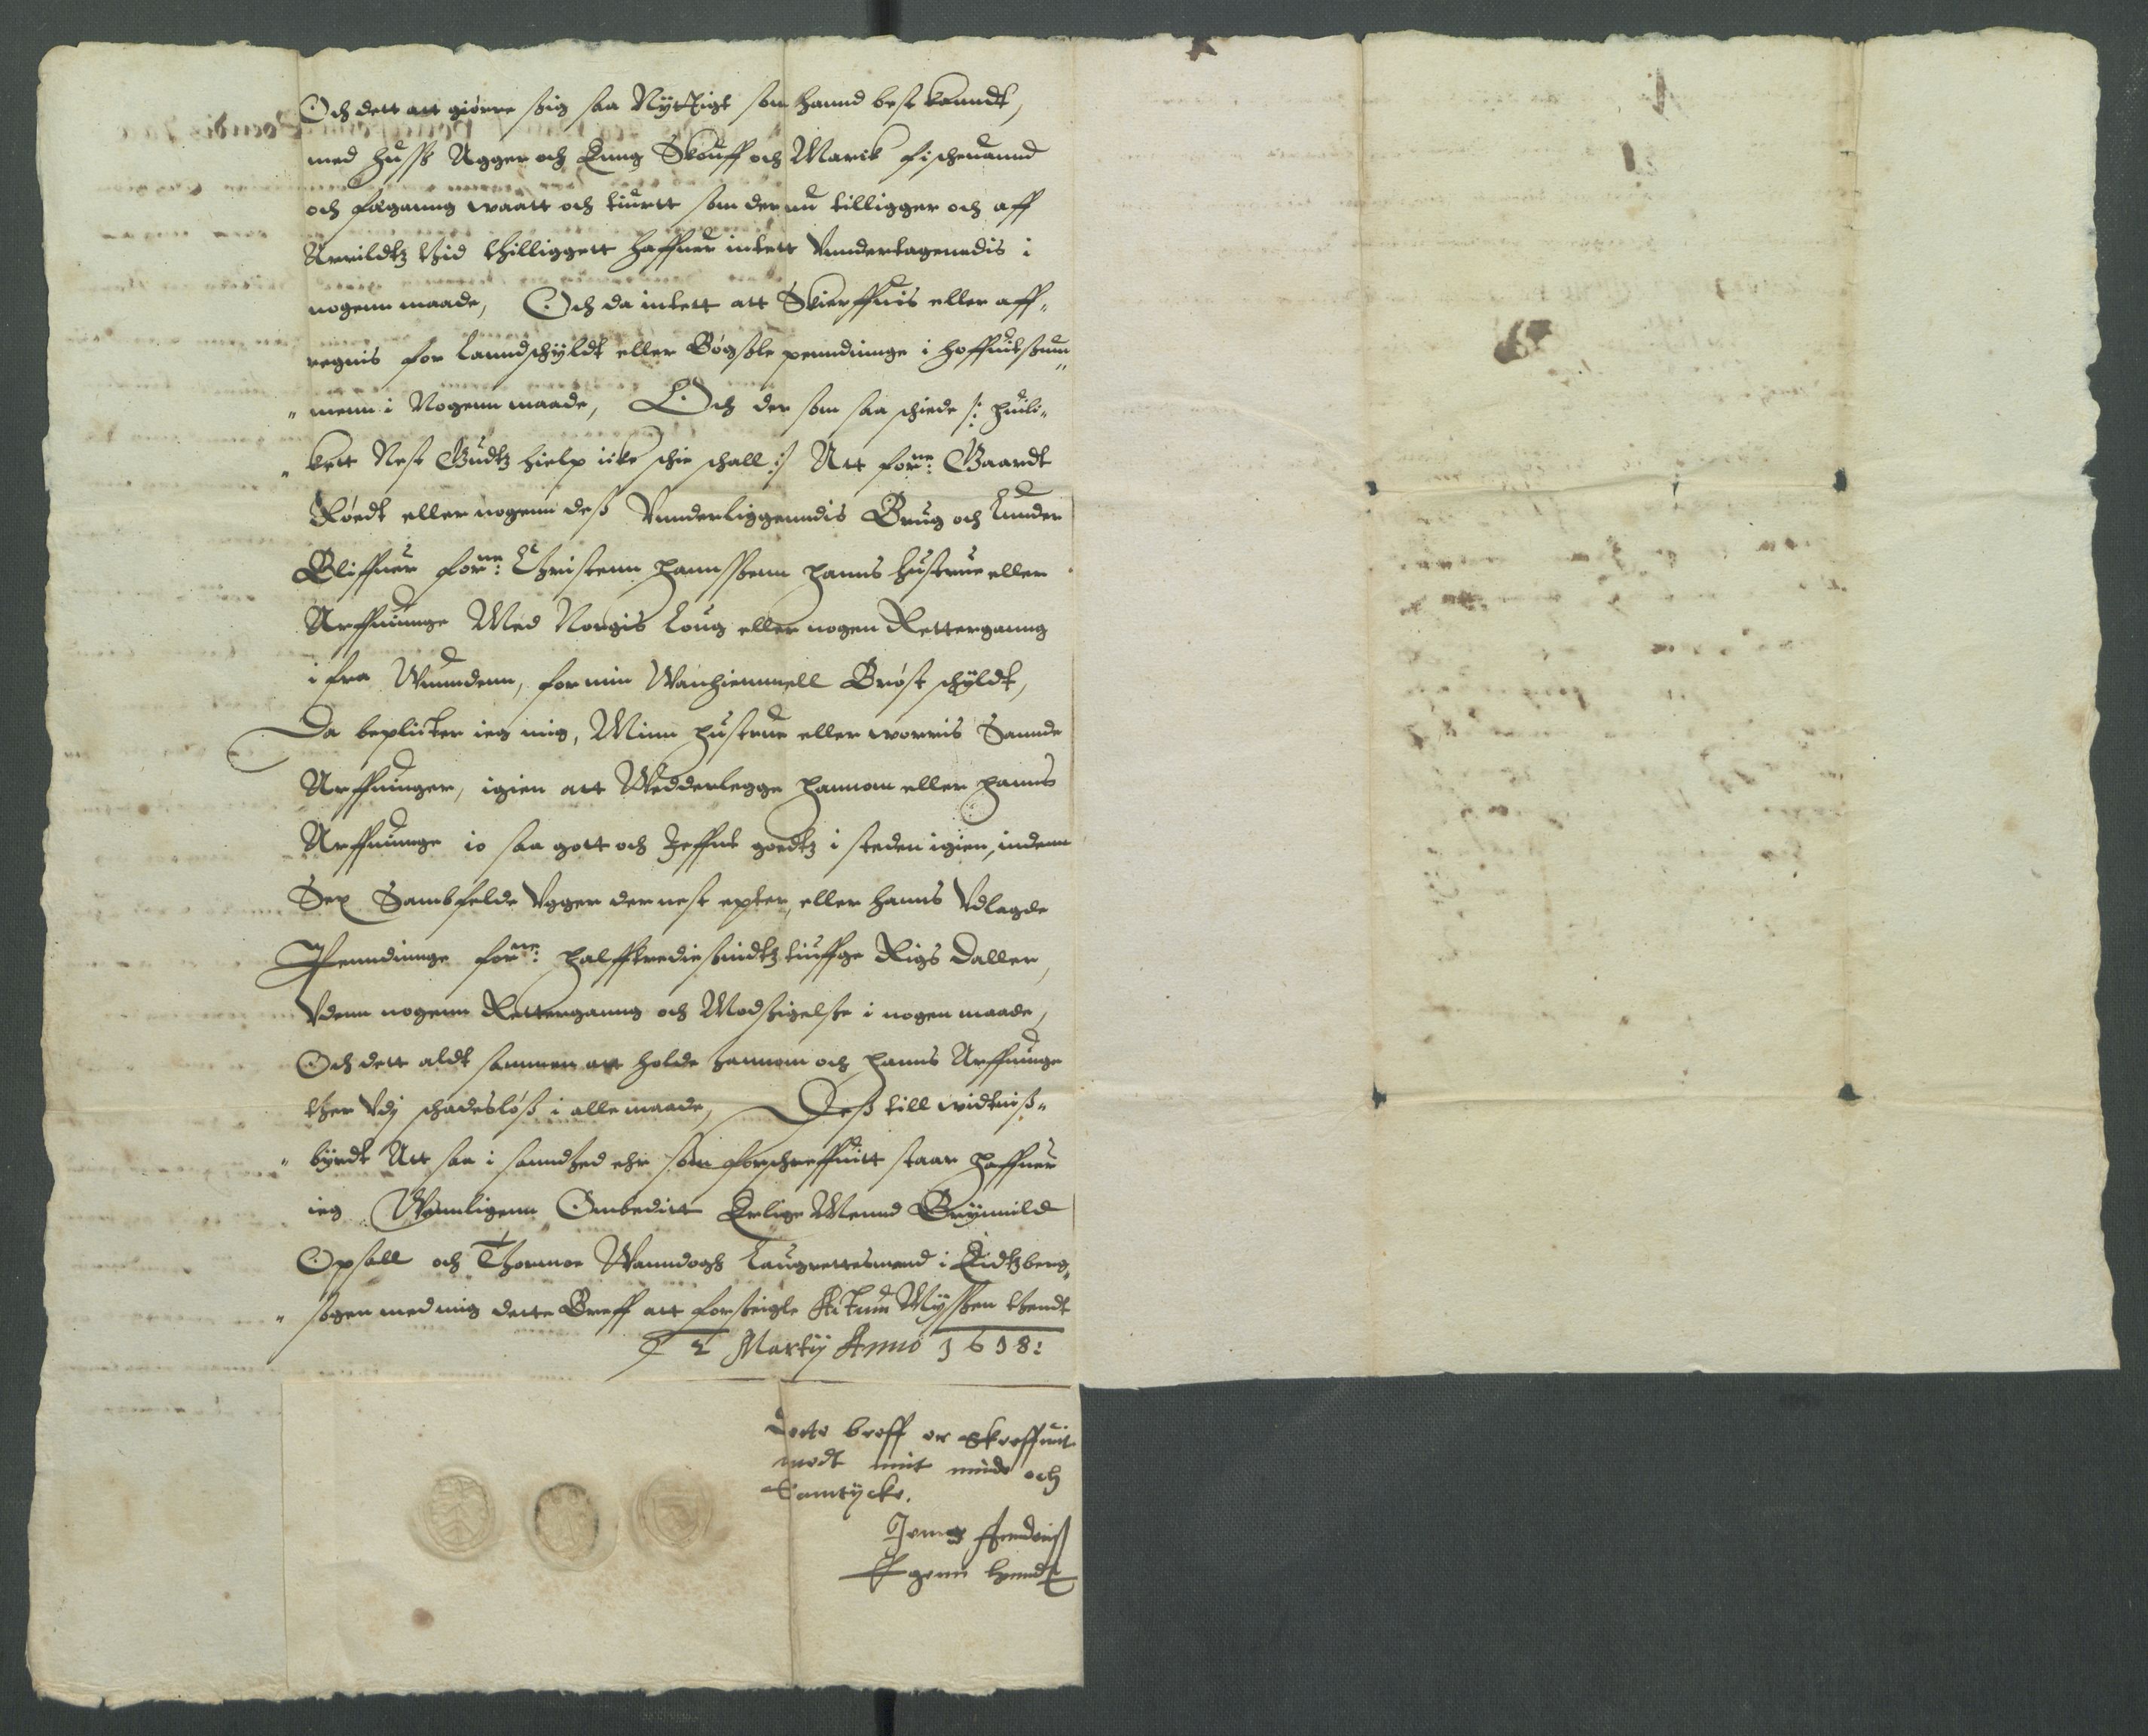 Och dett att giørre sig saa Nyttigt som hannd best kanndt,
med Huss Agger och Enng Skouff och Marck fischeuannd
och fægaanng waatt och tiurtt som der nu tilligger och aff
Arrildtz tid thilliggett haffuer intett Vnndertagenndis i
nogenn maade, Och da intett att Skierffuis eller aff„
regnis for Lanndschyldt eller Bøgssle penndinnge i hoffuitssum„
„ menn i Nogenn maade, Och der som saa schiede /: huil„
„ kett Nest Gudtz hielp icke schie schall :/ Att forne: Gaardt
Røedt eller nogenn dess Vnnderliggenndis Brug och Lunder
Bliffuer forne: Christenn Hannssenn Hanns Hustrue eller
Arffuinnge Med Norgis Loug eller nogen Rettergaanng
i fra Wunndenn, for min Wanhiemmell Brøst schyldt,
Da beplicter ieg mig, Minn Hustrue eller worris Sannde
Arffuinger, igien att Wedderlegge Hannom eller Hanns
Arffuinnge io saa gott och Jeffnt goedtz i steden igien, indenn
Sex Sambfelde Vgger der nest epter, eller Hanns Vdlagde
Penndinnge forne: Halfftrediesindtztiuffge Rigs Daller,
Vdenn nogenn Rettergaanng och Modsigelsse i nogen maade,
Och dett aldt sammen att holde Hannom och Hanns Arffuinge
ther Vdj schadesløss i alle maade, Dess till widtniss„
„ byrdt Att saa i sanndhed ehr som forschreffuitt staar Haffuer
ieg Wennligenn Ombeditt Erlige Mennd Brynnild
Opsall och Thormoe Wanndogh Laugrettesmend i Eidtzberg„
„ sogen med mig dette Breff att forseigle Actum Mysszen thend
12 Martij Anno 1618:
Dette breff er Skreffuit
medt mit minde och
Samtycke.
Jens
Egenn Hanndt